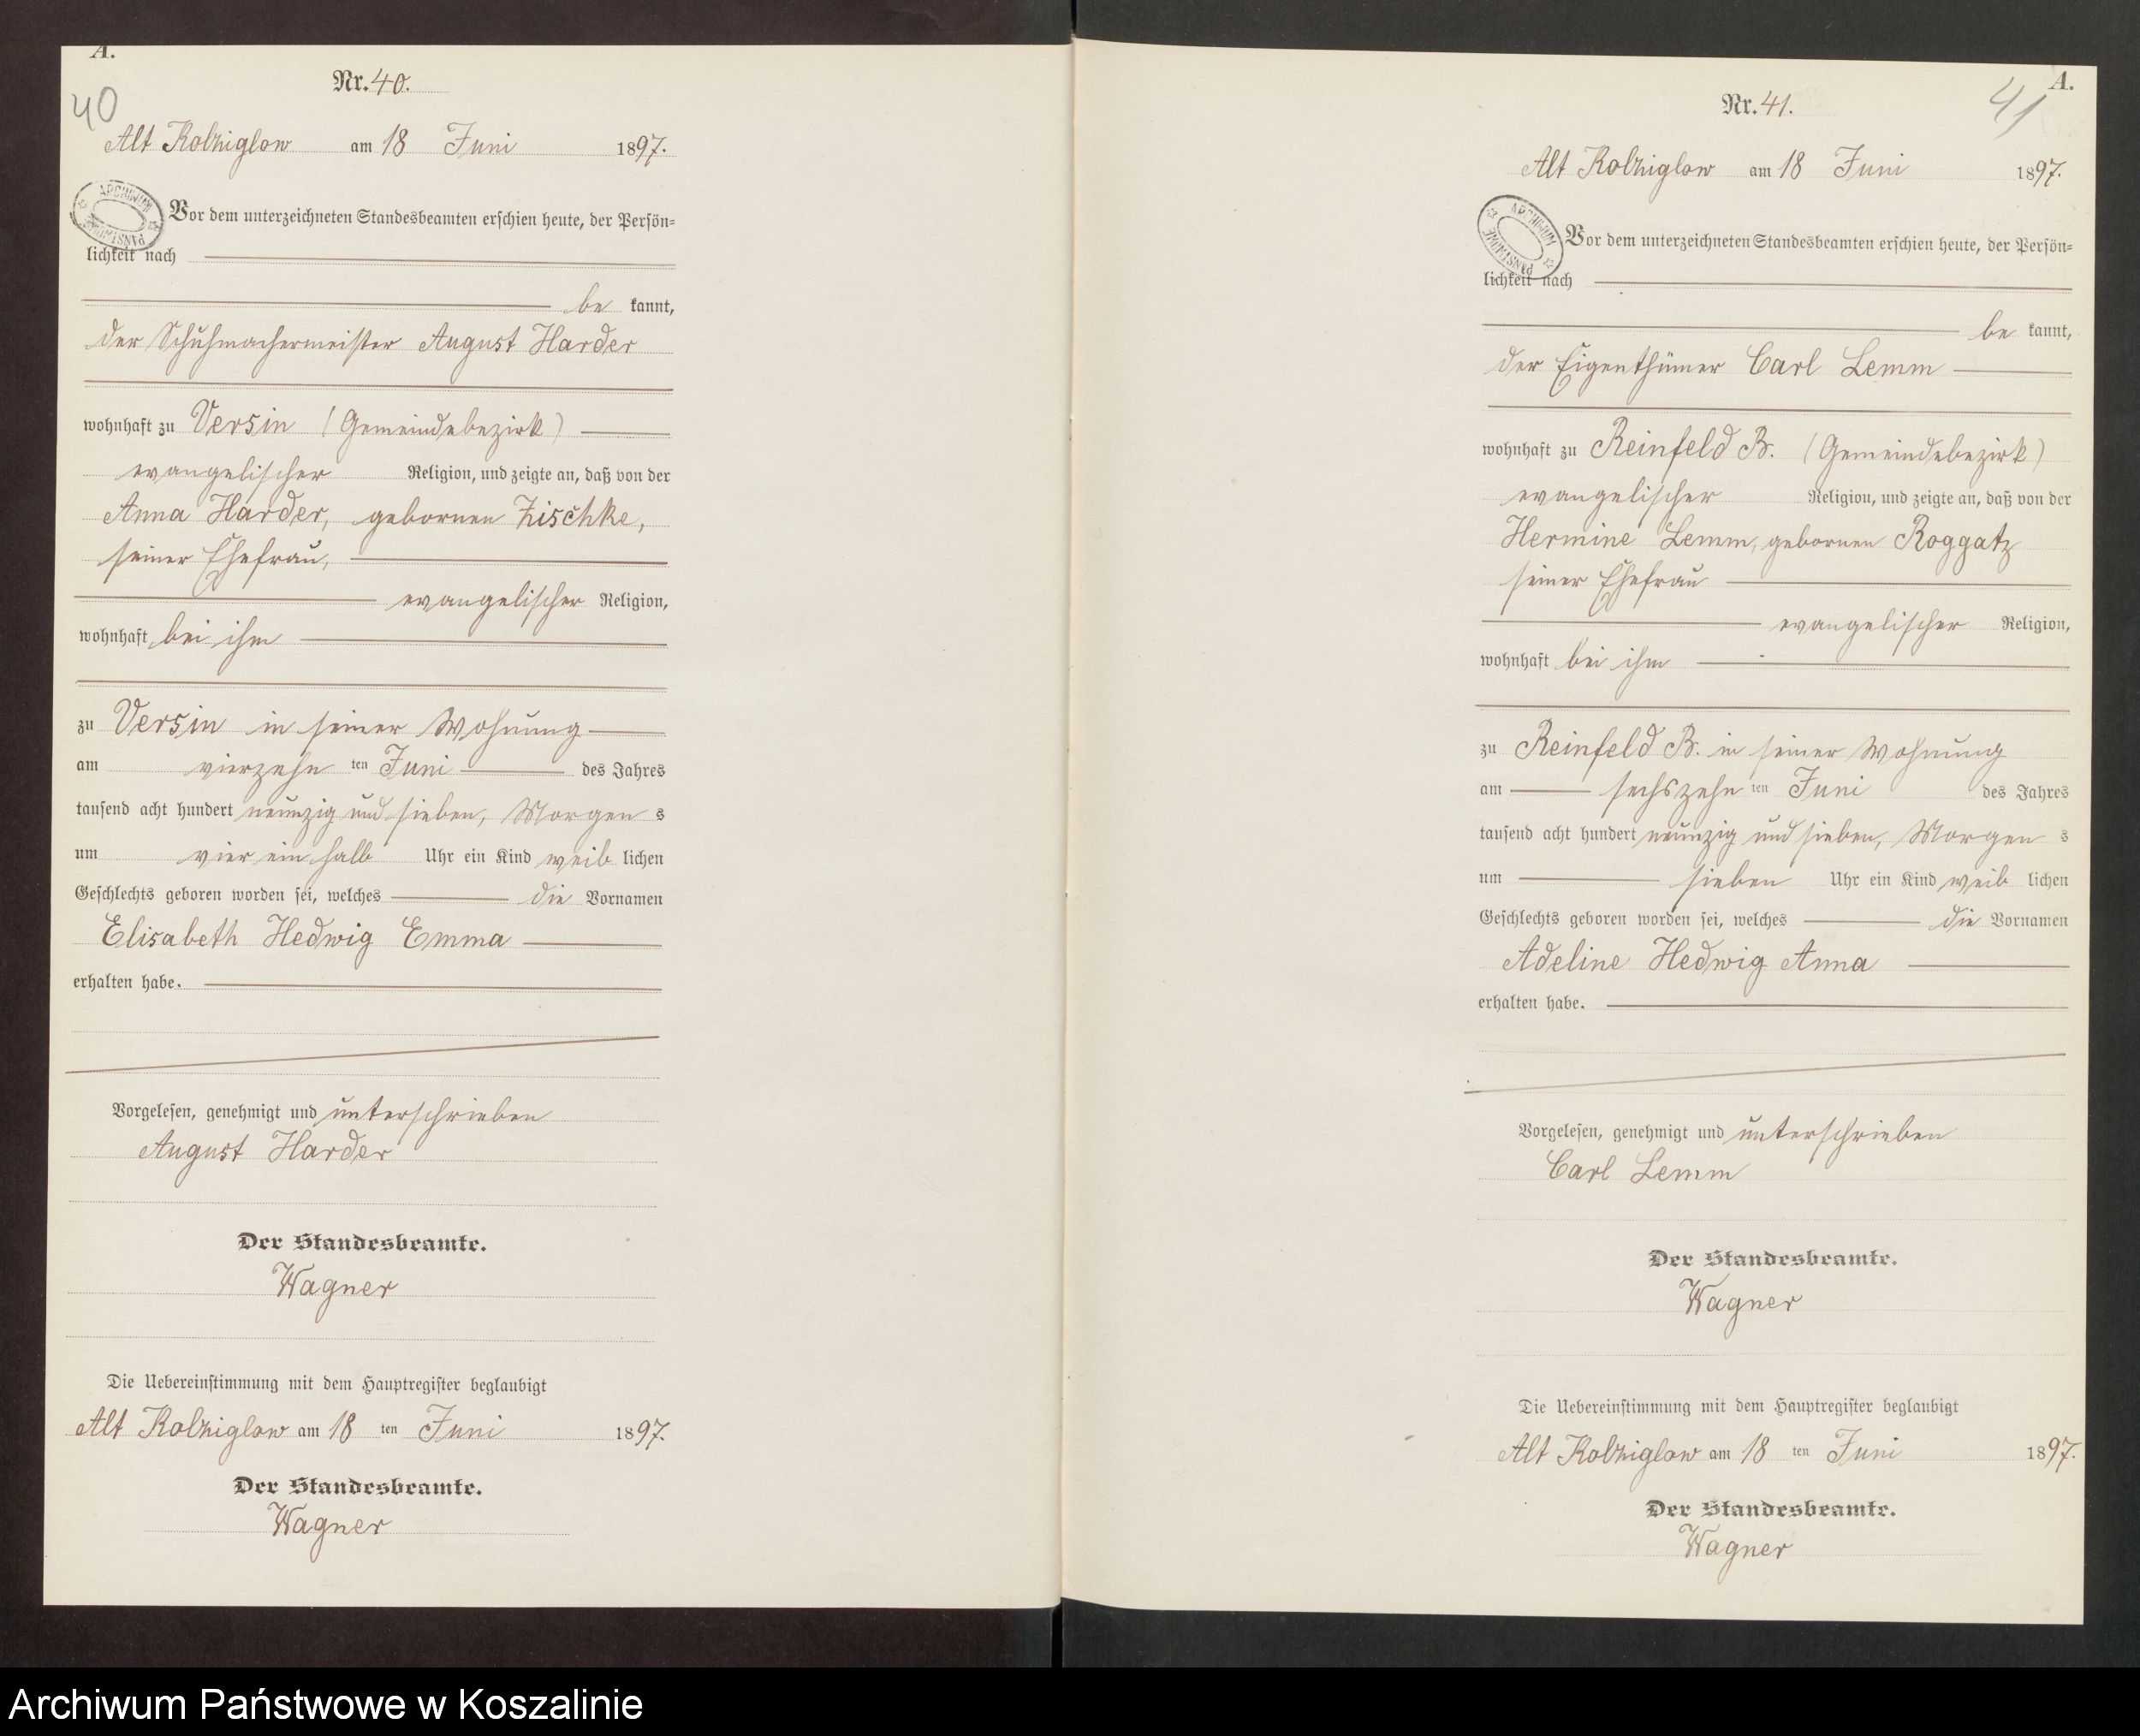 A.
Nr. 40.
40
Alt Kolziglow am 18 Juni 1897.
ARCHIWUM PAŃSTWOWE
Vor dem unterzeichneten Standesbeamten erschien heute, der Persön-
lichkeit nach
be kannt,
der Schuhmachermeister August Harder
wohnhaft zu Versin (Gemeindebezirk)
evangelischer Religion, und zeigte an, daß von der
Anna Harder, gebornen Zischke,
seiner Ehefrau,
evangelischer Religion,
wohnhaft bei ihm
zu Versin in seiner Wohnung
am vierzehn ten Juni des Jahres
tausend acht hundert neunzig und sieben, Morgen s
um vier ein halb Uhr ein Kind weib lichen
Geschlechts geboren worden sei, welches die Vornamen
Elisabeth Hedwig Emma
erhalten habe.
Vorgelesen, genehmigt und unterschrieben
August Harder
Der Standesbeamte.
Wagner
Die Uebereinstimmung mit dem Hauptregister beglaubigt
Alt Kolziglow am 18 ten Juni 1897.
Der Standesbeamte.
Wagner
A.
Nr. 41.
41
Alt Kolziglow am 18 Juni 1897.
ARCHIWUM PAŃSTWOWE
Vor dem unterzeichneten Standesbeamten erschien heute, der Persön-
lichkeit nach
be kannt,
der Eigenthümer Carl Lemm
wohnhaft zu Reinfeld B. (Gemeindebezirk)
evangelischer Religion, und zeigte an, daß von der
Hermine Lemm, gebornen Roggatz
seiner Ehefrau
evangelischer Religion,
wohnhaft bei ihm
zu Reinfeld B. in seiner Wohnung
am sechszehn ten Juni des Jahres
tausend acht hundert neunzig und sieben, Morgen s
um sieben Uhr ein Kind weib lichen
Geschlechts geboren worden sei, welches die Vornamen
Adeline Hedwig Anna
erhalten habe.
Vorgelesen, genehmigt und unterschrieben
Carl Lemm
Der Standesbeamte.
Wagner
Die Uebereinstimmung mit dem Hauptregister beglaubigt
Alt Kolziglow am 18 ten Juni 1897.
Der Standesbeamte.
Wagner
Archiwum Państwowe w Koszalinie